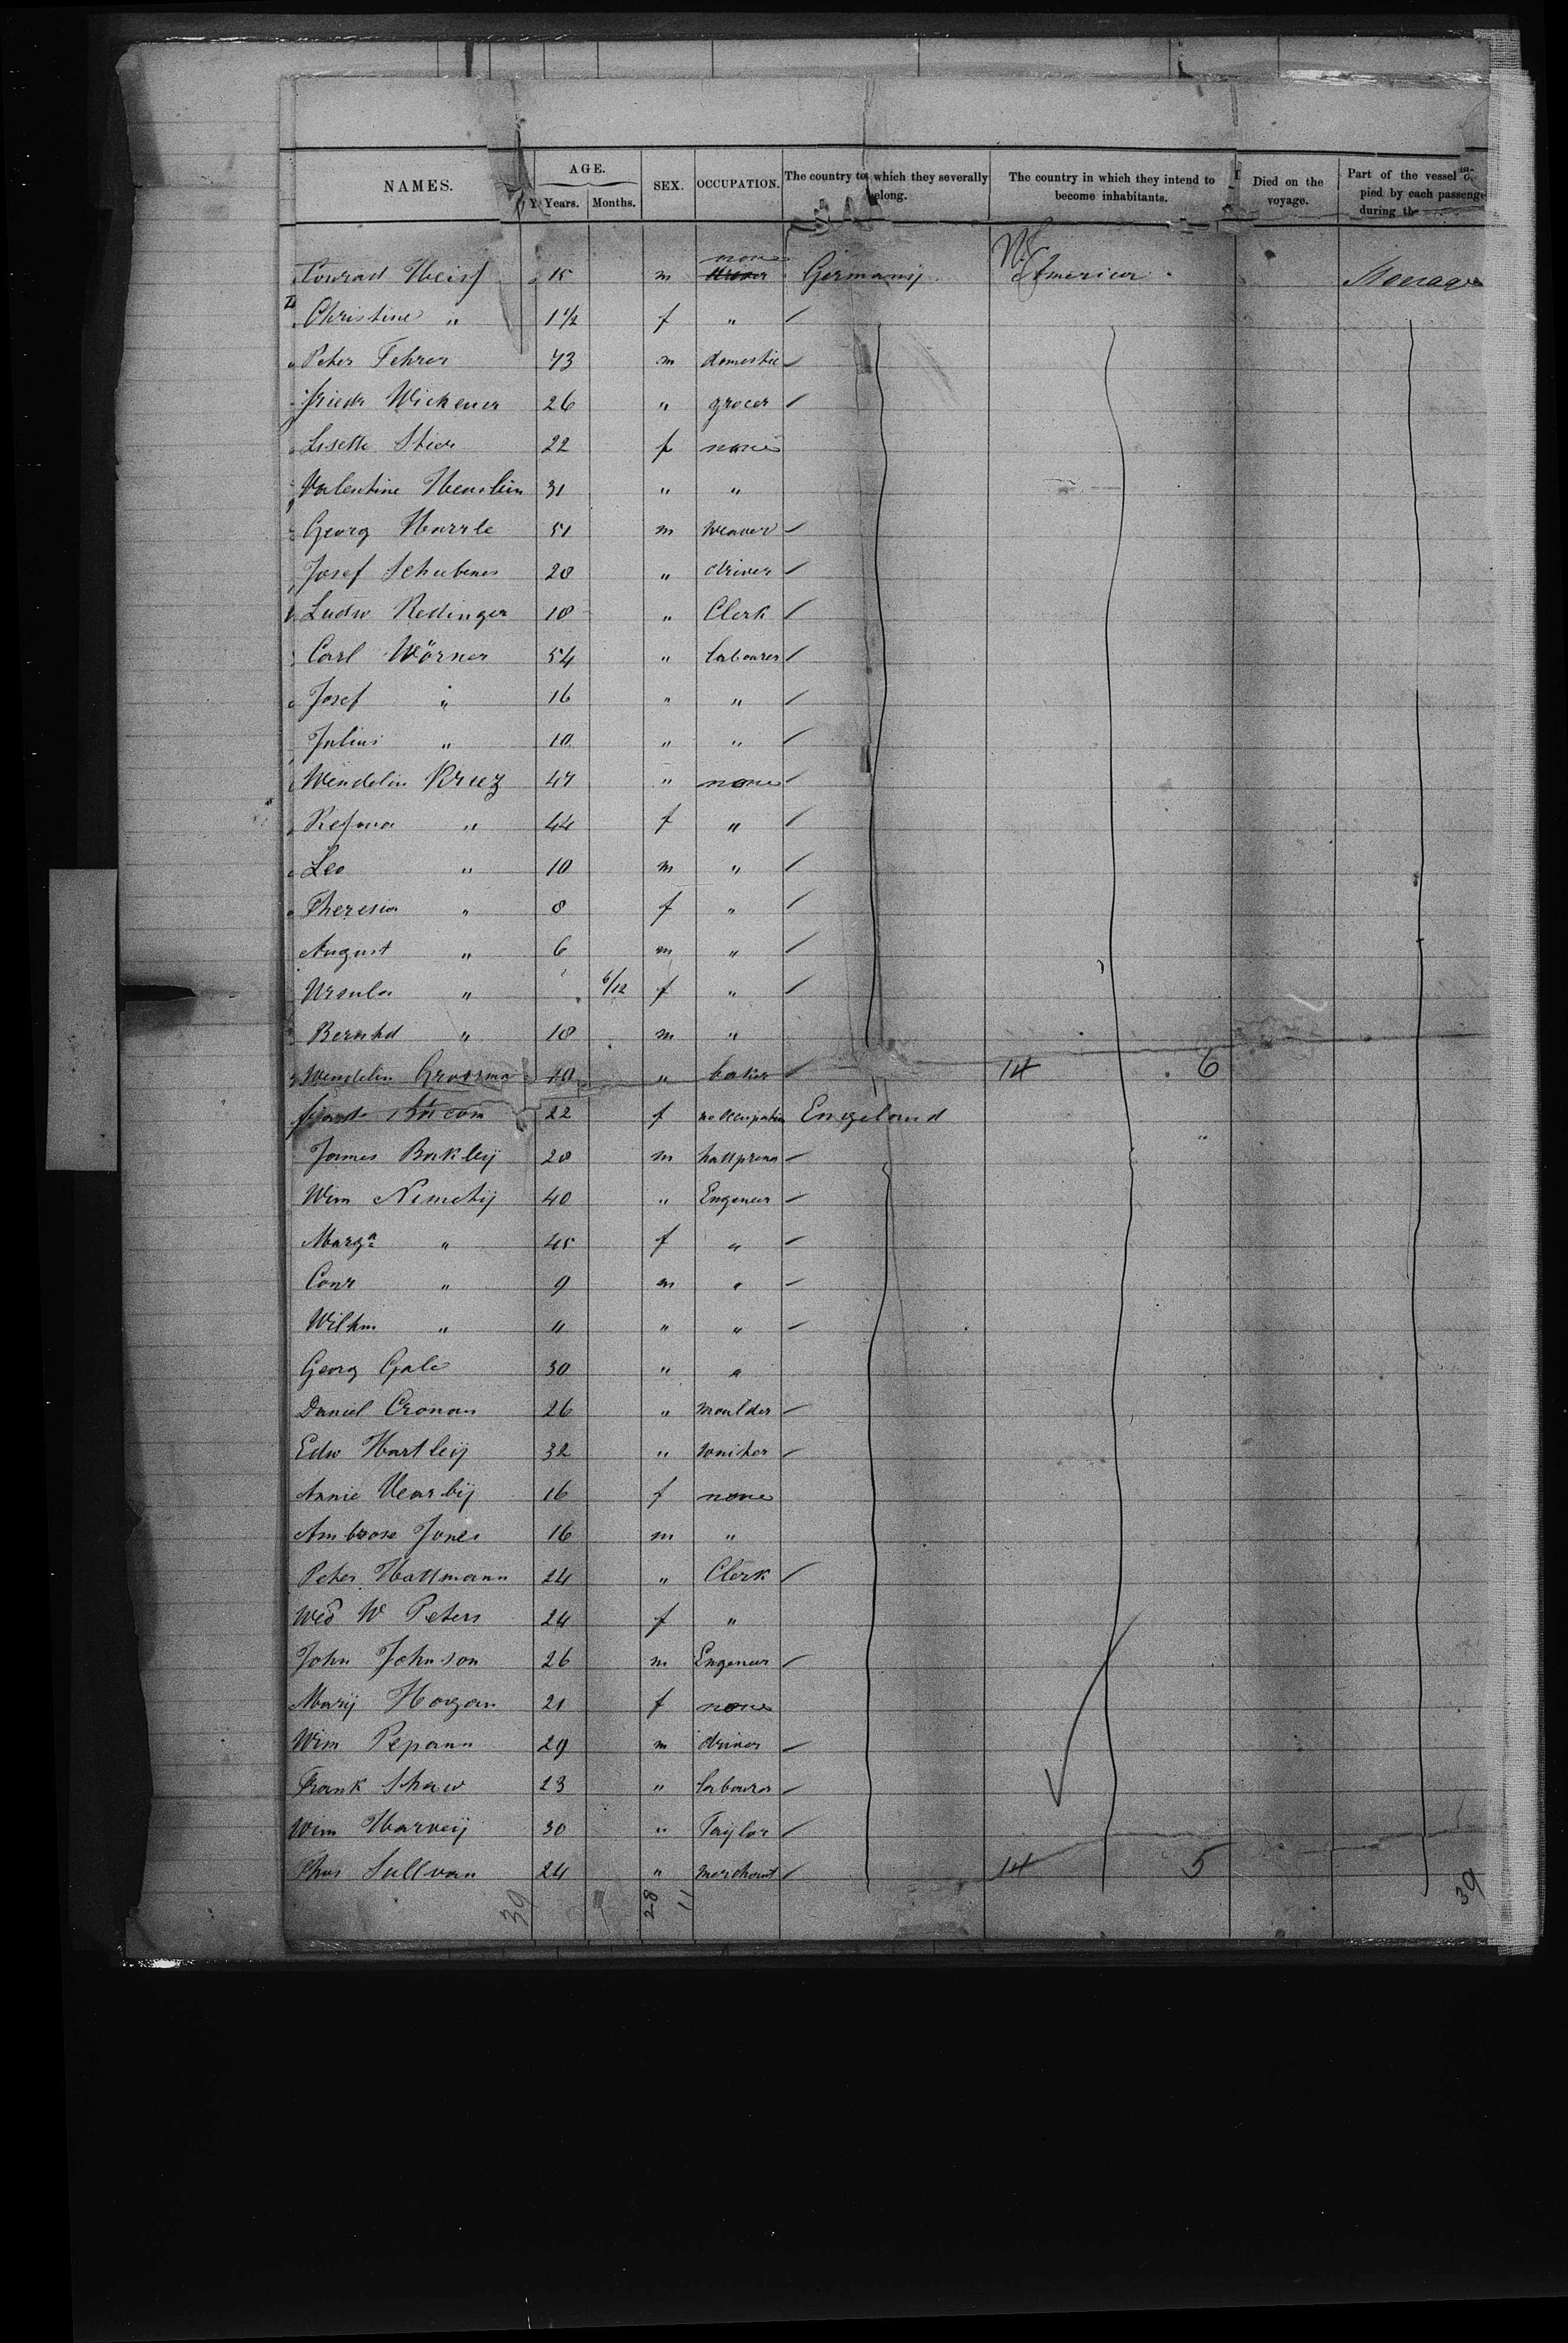 NAMES. AGE. SEX. OCCUPATION. The country to which they severally belong. The country in which they intend to become inhabitants. Died on the voyage. Part of the vessel pied by each passenge during th
Years. Months.
Conrad Weiss 15 m none Germany N. America Steerage
Christine " 1 1/2 f "
Peter Fehrer 43 m domestic
Friedr Wickener 26 " grocer
Lisette Stier 22 f none
Valentine 31 " "
Georg Harrle 51 m weaver
Josef Schubener 28 " driver
Ludw Redinger 18 " Clerk
Carl Wörner 54 " labourer
Josef " 16 " "
Julius " 10 " "
Wendelin Kruz 47 " none
Regina " 44 f "
Leo " 10 m "
Theresia " 8 f "
August " 6 m "
Ursula " 6/12 f "
Bernhd " 18 m "
Wendelin Grossma " baker 14 6
Bacon 22 f no occupation Engeland
James Barkley 28 m
Wim Nimety 40 " Engeneer
Marga " 45 f "
Conr " 9 m "
Wilhm " 11 " "
Georg Gale 30 " "
Daniel Cronan 26 " moulder
Edw Hartley 32 "
Annie Vearby 16 f none
Ambrose Jones 16 m "
Peter Hattmann 24 " Clerk
Wed W Peters 24 f "
John Johnson 26 m Engeneer
Mary Horgan 21 f none
Wim Pepann 29 m driver
Frank Shaw 23 " labourer
Wim Harvey 30 " Taylor
Thos Sullvan 24 " merchant 14 5
39 28 11 39